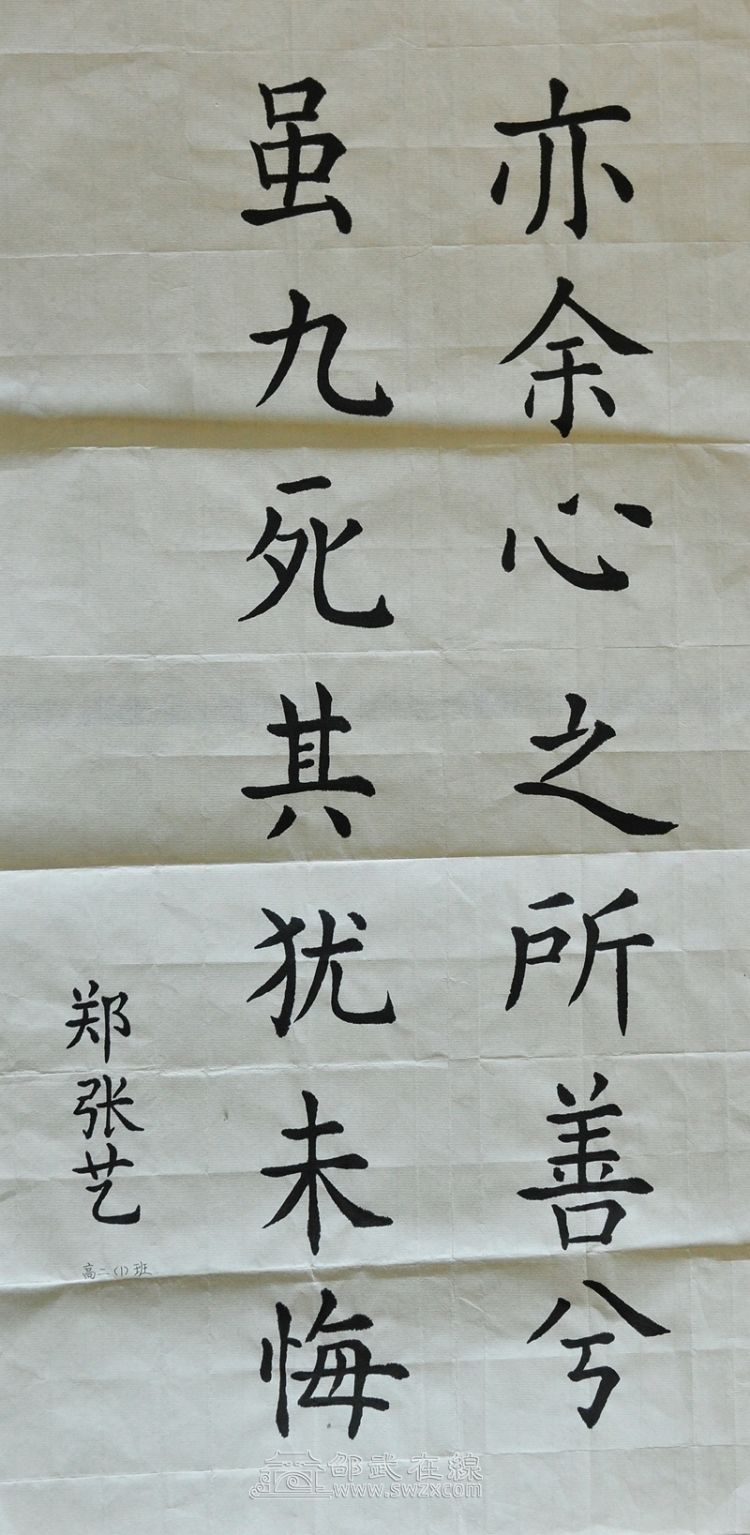 亦余心之所善兮
虽九死其犹未悔
郑张艺
高二(1)班
邵武在線
www.swzx.com